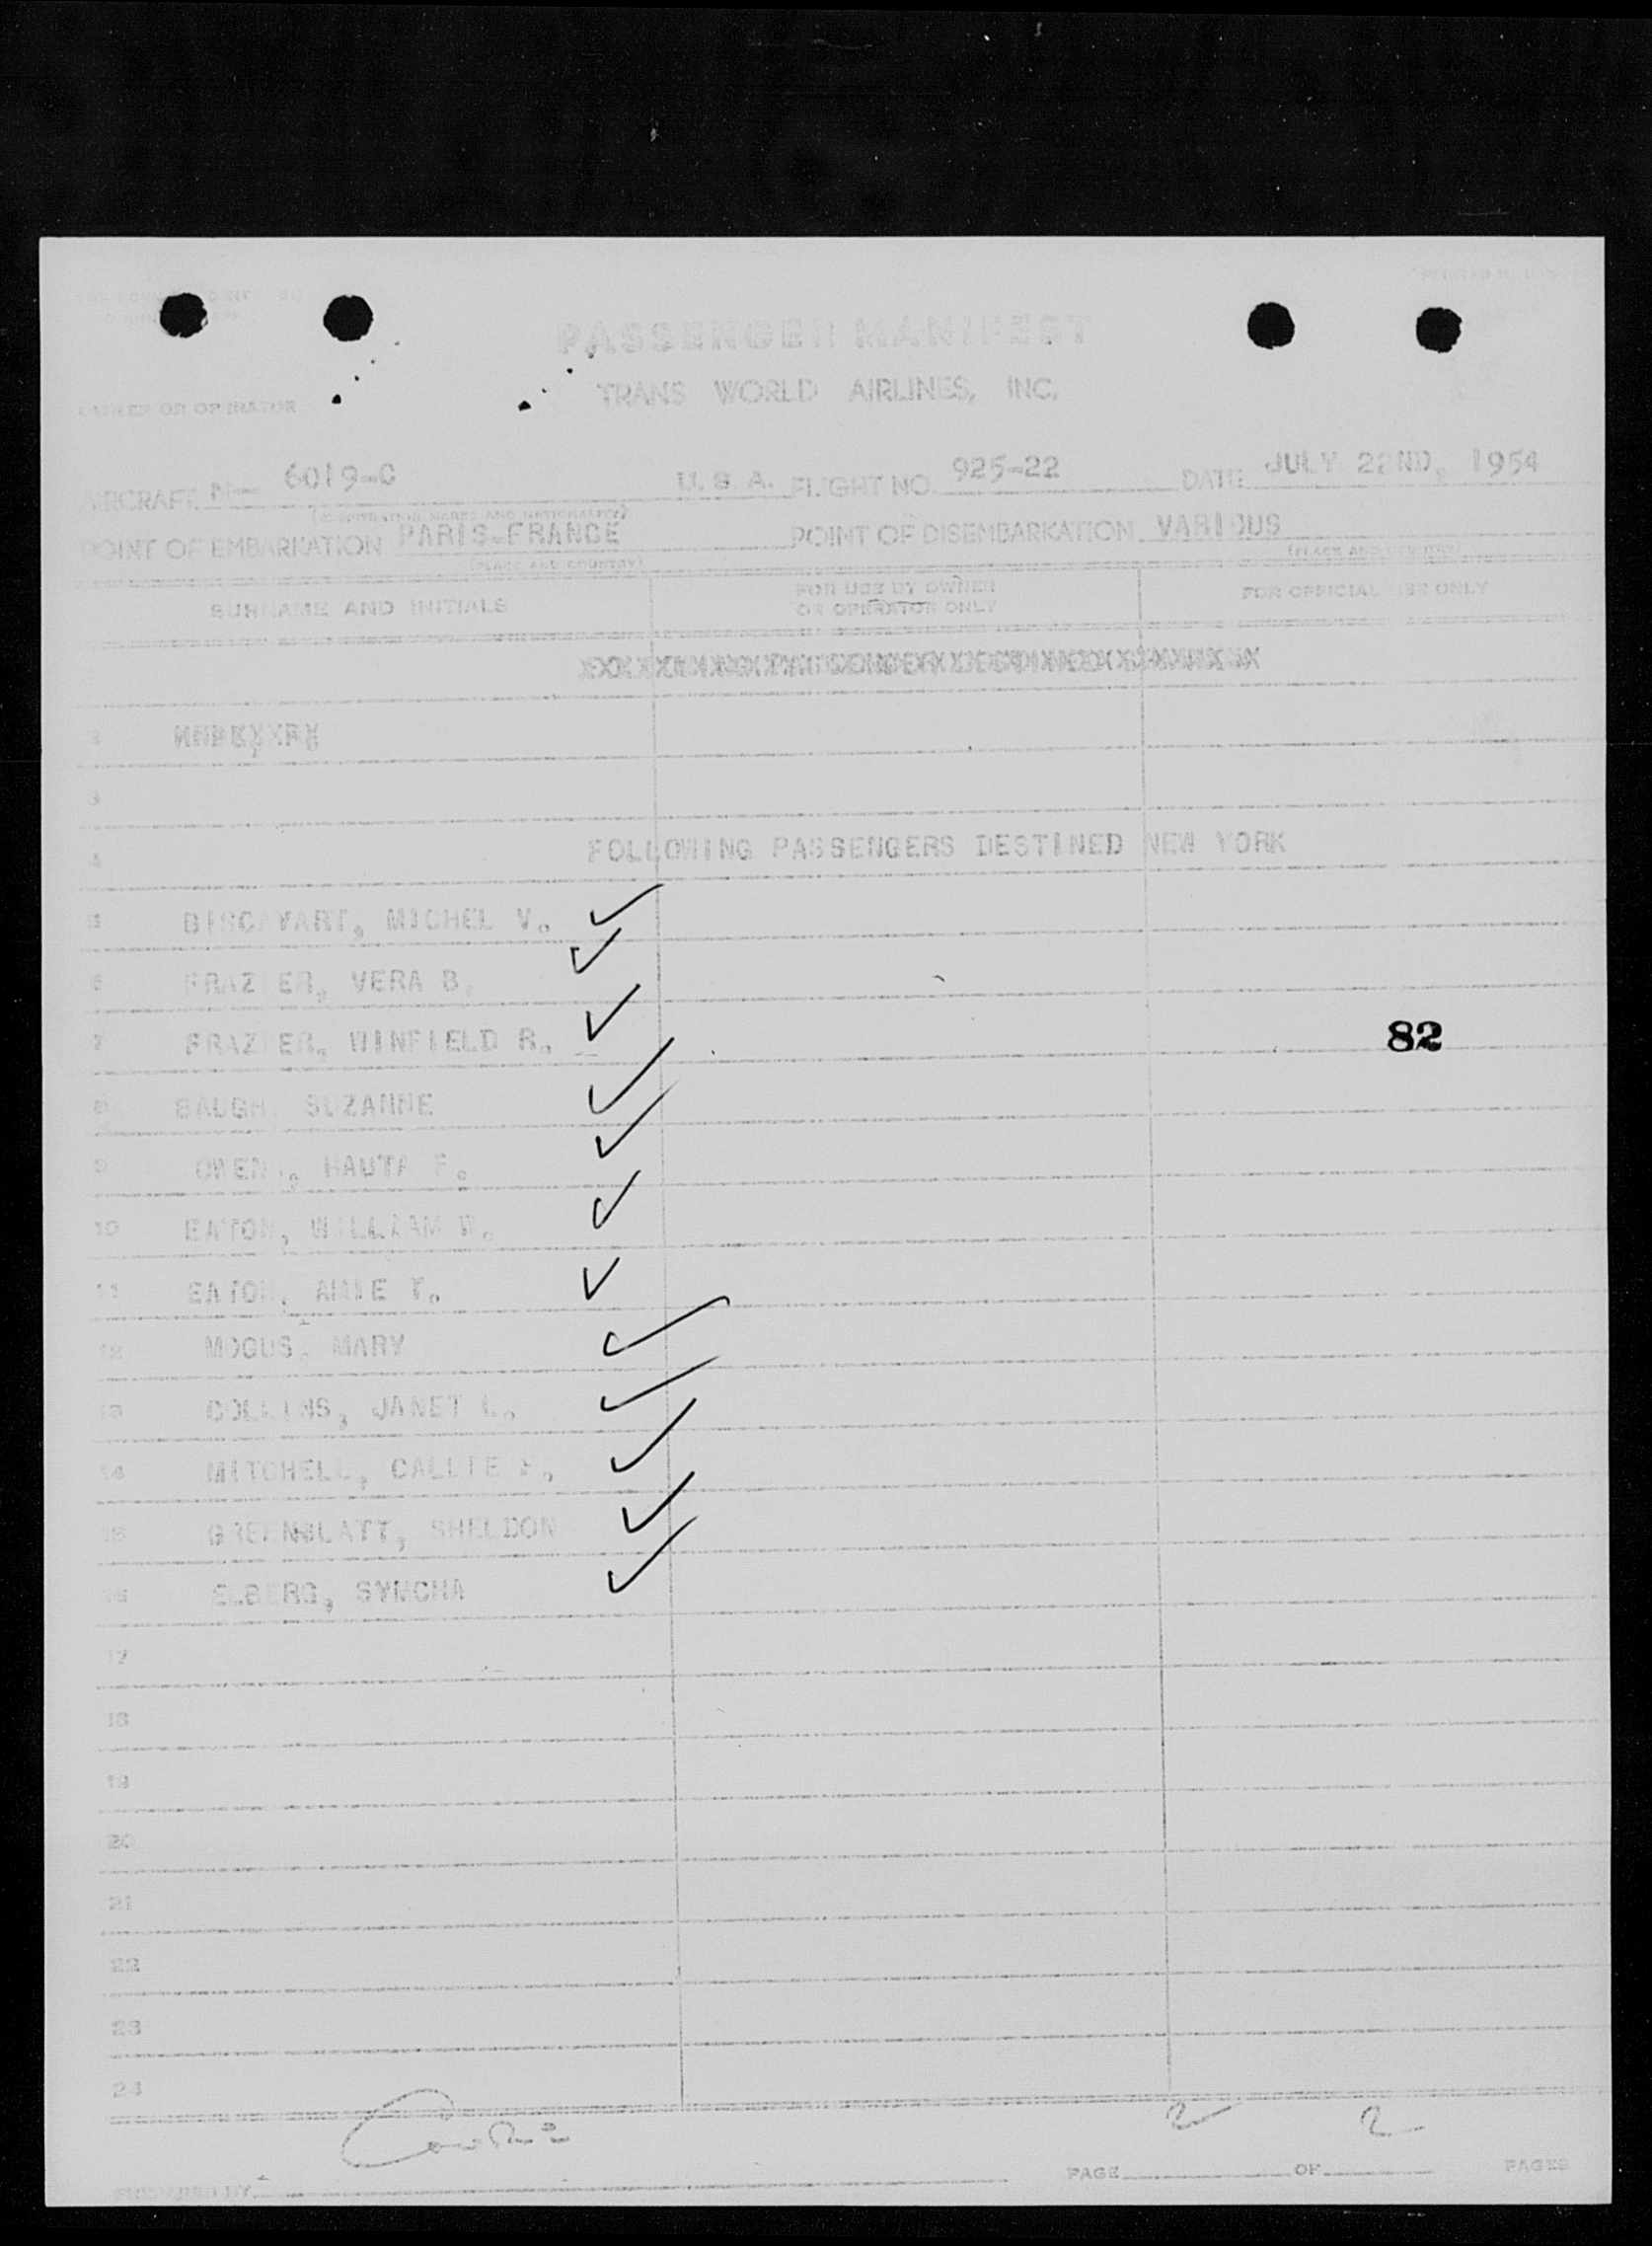 PASSENGER MANIFEST
OWNER OR OPERATOR TRANS WORLD AIRLINES, INC.
AIRCRAFT N— 6019-C U. S. A. FLIGHT NO. 925-22 DATE JULY 22ND, 1954
(REGISTRATION MARKS AND NATIONALITY)
POINT OF EMBARKATION PARIS-FRANCE POINT OF DISEMBARKATION VARIOUS
(PLACE AND COUNTRY) (PLACE AND COUNTRY)
SURNAME AND INITIALS FOR USE BY OWNER OR OPERATOR ONLY FOR OFFICIAL USE ONLY
2
3
4 FOLLOWING PASSENGERS DESTINED NEW YORK
5 BISCAYART, MICHEL V.
6 FRAZIER, VERA B.
7 FRAZIER, WINFIELD R. 82
8 BAUGH, SUZANNE
9 OWEN, F.
10 EATON, WILLIAM W.
11 EATON, ANNE T.
12 MOGUS, MARY
13 COLLINS, JANET L.
14 MITCHELL, CALLIE
15 GREENBLATT, SHELDON
16 ELBERG, SYMCHA
17
18
19
20
21
22
23
24
PREPARED BY PAGE 2 OF 2 PAGES